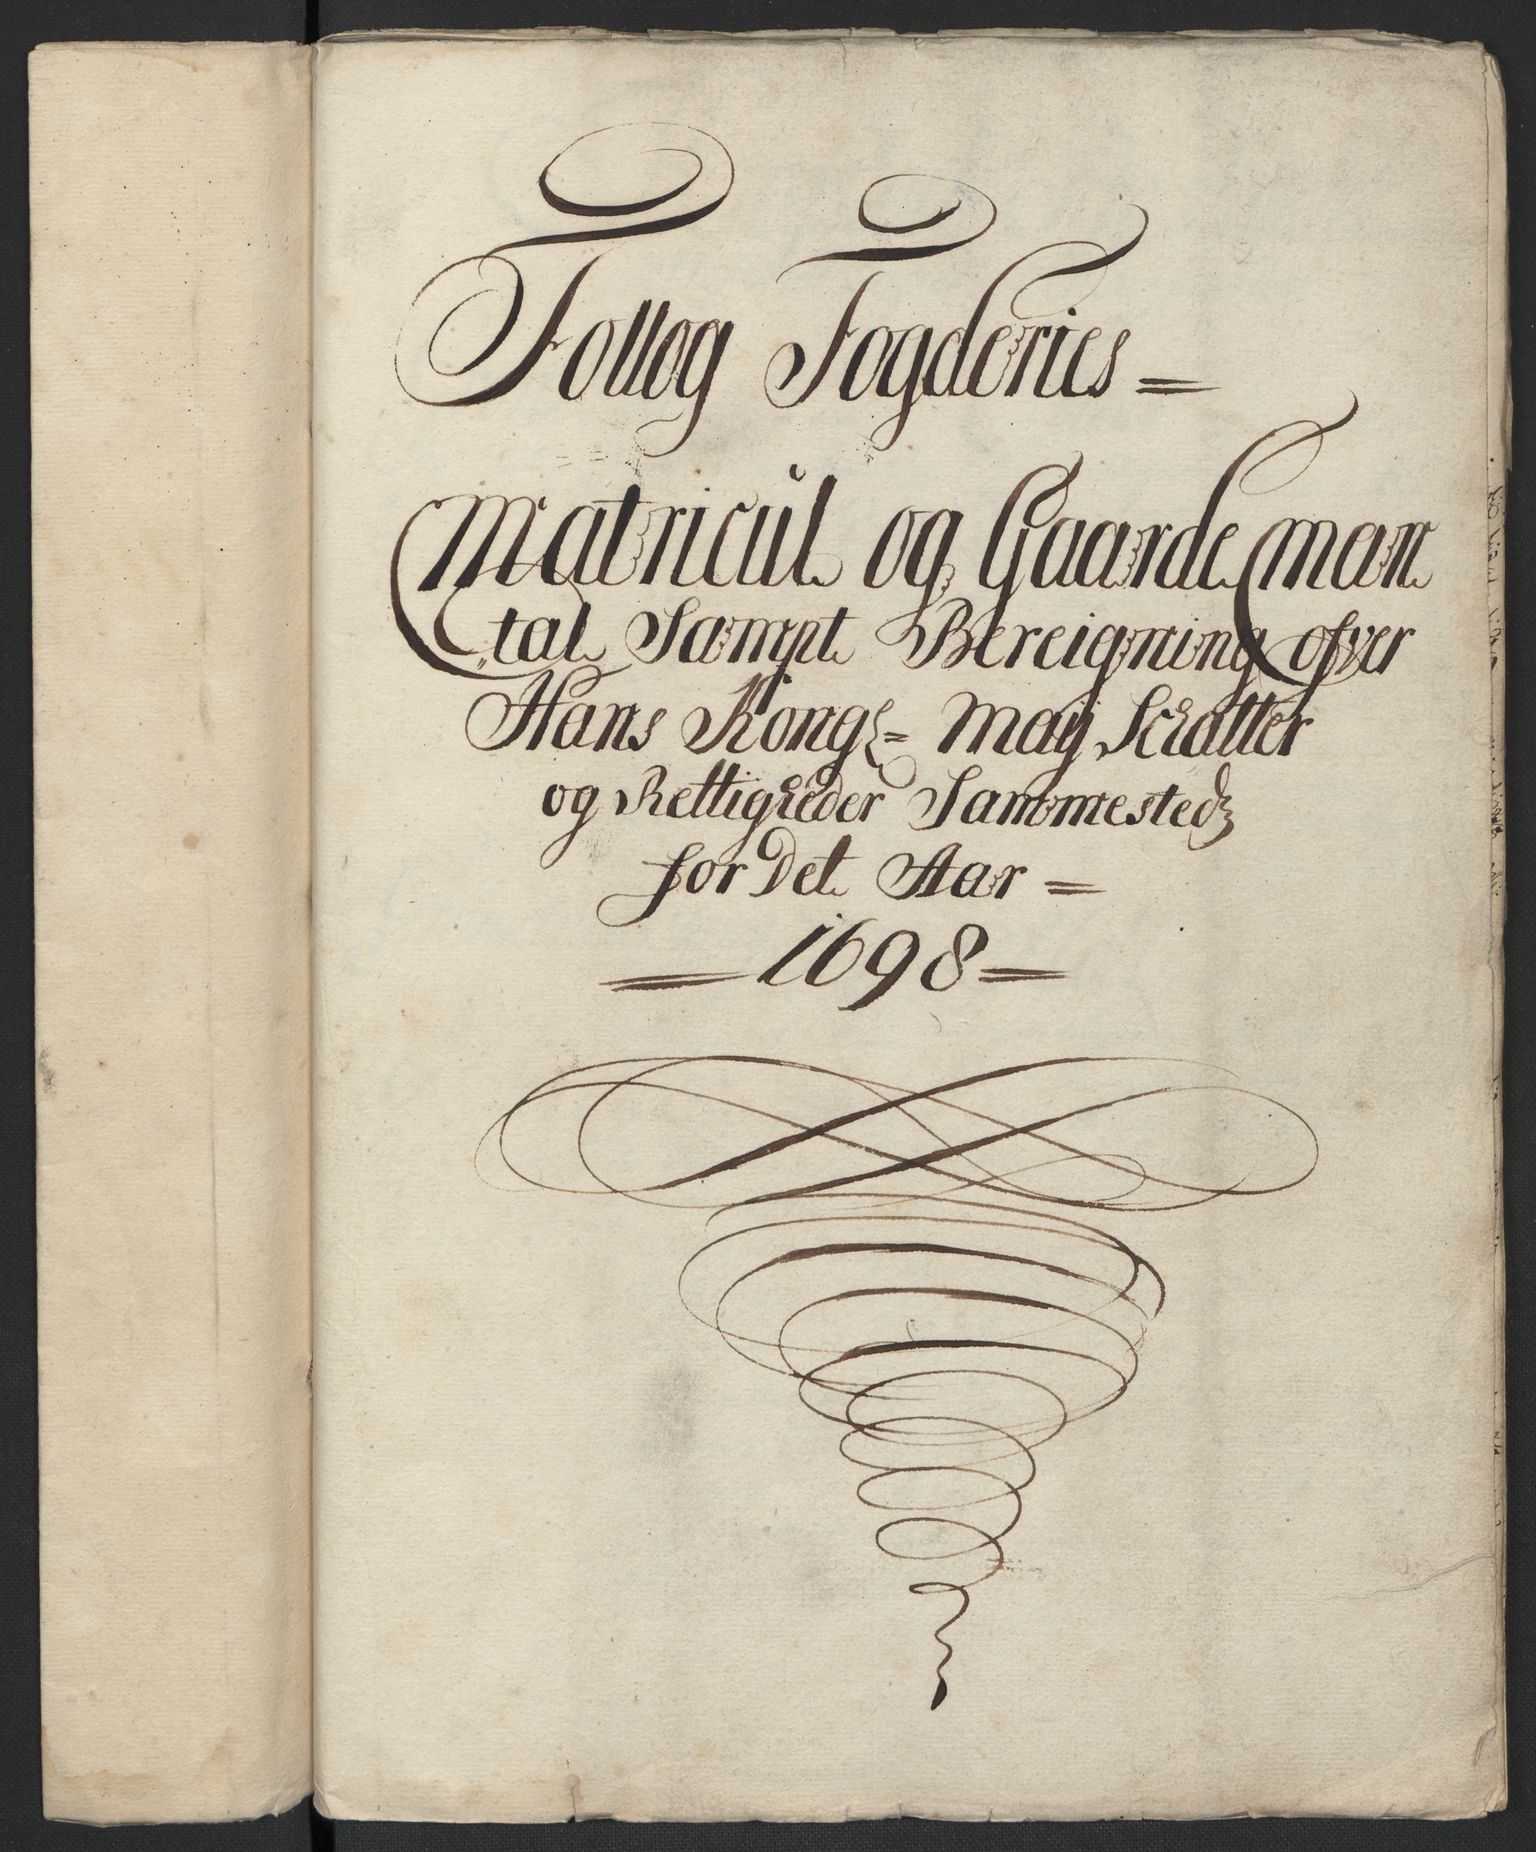 Follog Fogderies =
Matricul og Gaarde man
tal Sampt Bereigning ofver
Hans Kongl= May Schatter
og Rettigheder Sammestedz
for Det Aar =
= 1698 =